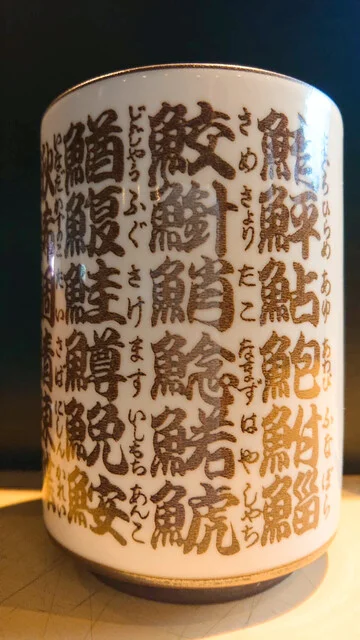 ひらめ あゆ あわび ふな ぼら
鮃鮎鮑鮒鯔
さめ さより たこ なまず はや しやち
鮫鮹鯰鰙鯱
どじやう ふぐ さけ ます いしもち あんこ
鰌鰒鮭鱒鮸鮟
たい さば にしん かれい